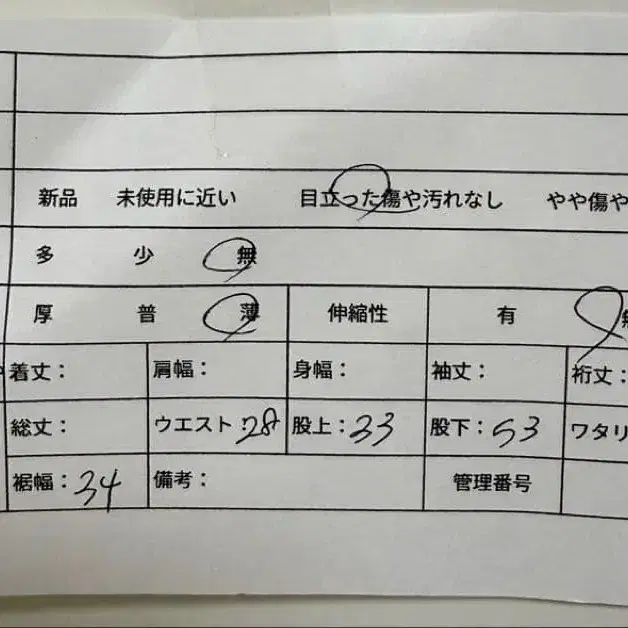 新品 未使用に近い 目立った傷や汚れなし やや傷や
多 少 無
厚 普 薄 伸縮性 有
着丈: 肩幅: 身幅: 袖丈: 裄丈:
総丈: ウエスト:28 股上:33 股下:53 ワタリ
裾幅:34 備考: 管理番号